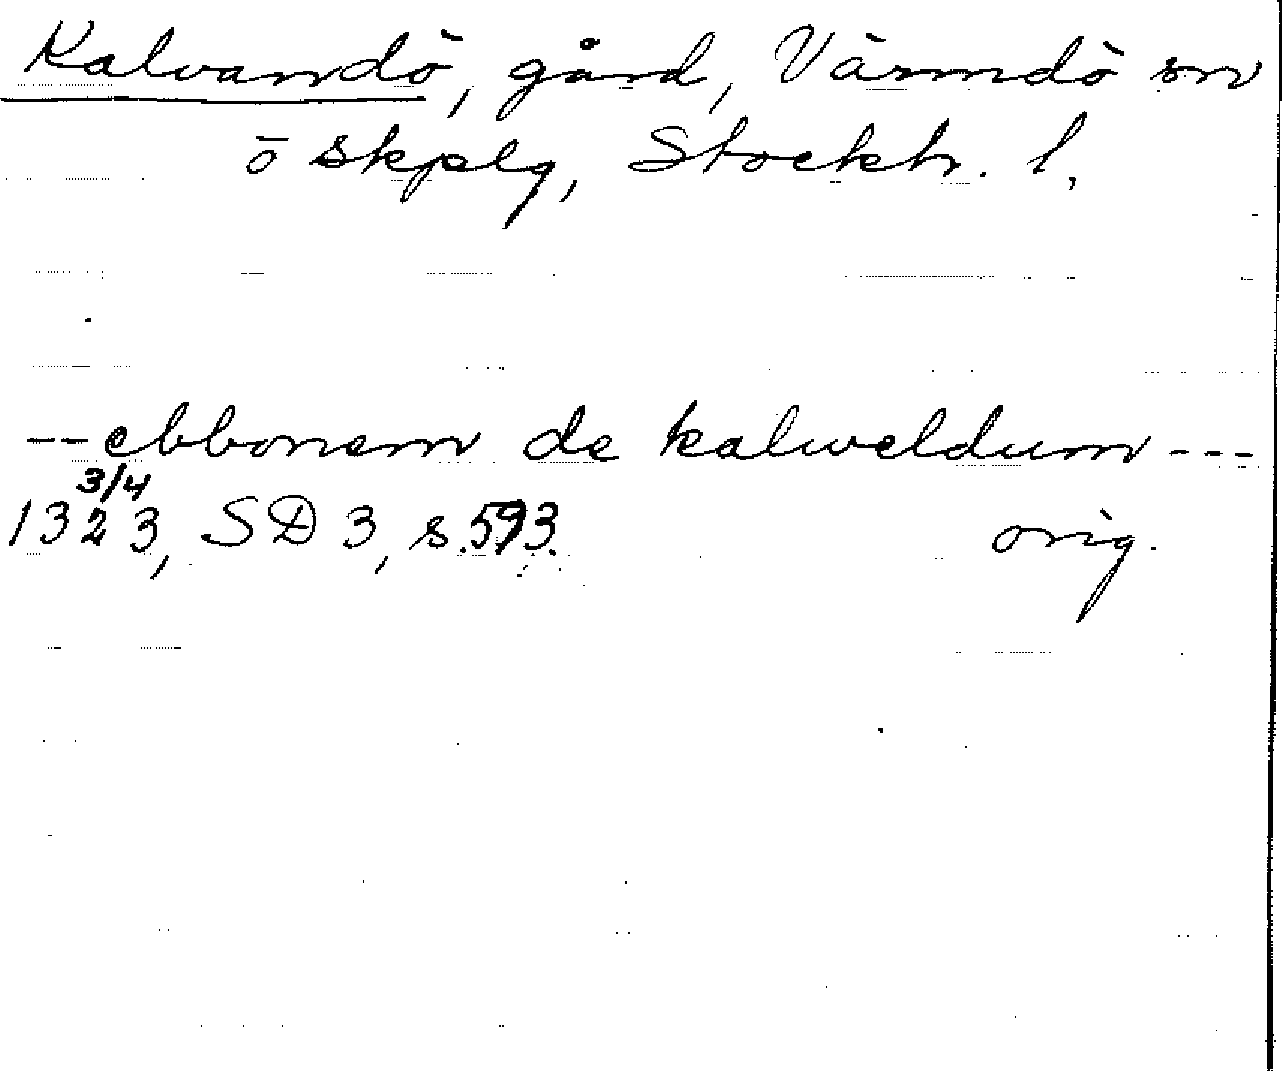 Kalvandö, gård, Värmdö sn
ö skplg, Stockh. l.
--ebbonem de kalweldum---
3/4
1323, SD 3, s.593. orig.